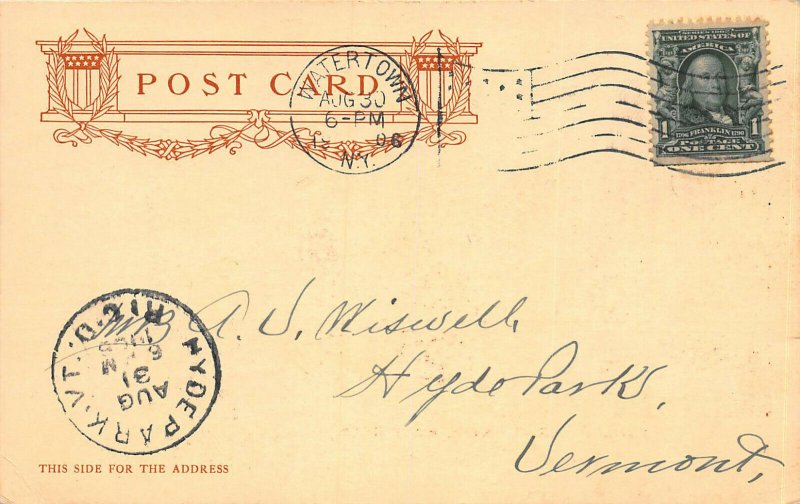 SERIES 1902
UNITED STATES OF
AMERICA
1 1706 FRANKLIN 1790 1
POSTAGE
ONE CENT
POST CARD
WATERTOWN
AUG 30
6-PM
06
N.Y.
HYDE PARK, VT.
REC'D.
AUG
31
6 AM
A. J. Wiswell
Hyde Park,
Vermont,
THIS SIDE FOR THE ADDRESS